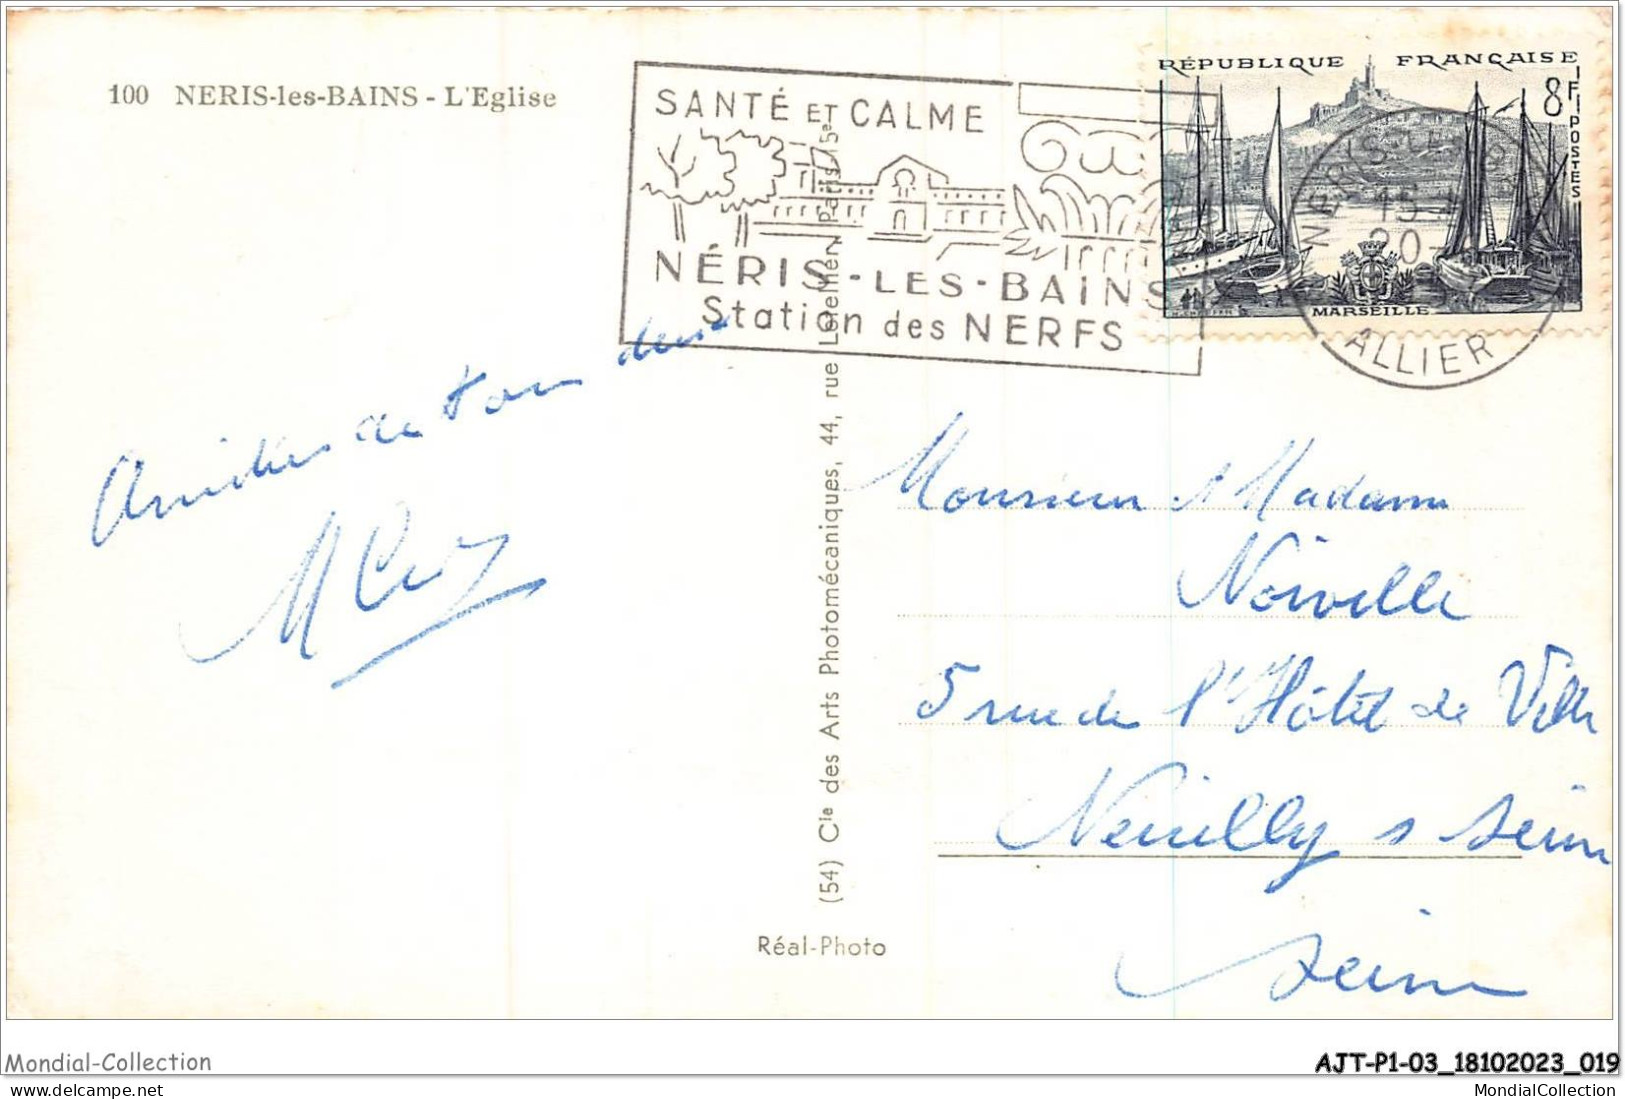 100 NERIS-les-BAINS - L'Eglise
SANTÉ ET CALME
NÉRIS - LES - BAINS
Station des NERFS
RÉPUBLIQUE FRANÇAISE
8F
POSTES
MARSEILLE
NERIS
15
20
ALLIER
Amitiés de tous deux
Monsieur & Madame
Noirville
5 rue de l'Hôtel de Ville
Neuilly s Seine
Seine
(54) Cie des Arts Photomécaniques, 44, rue Letellier, Paris 15e
Réal-Photo
Mondial-Collection
AJT-P1-03_18102023_019
MondialCollection